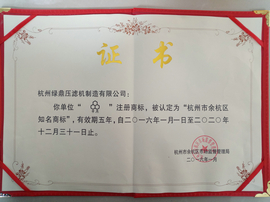 证书
杭州绿鼎压滤机制造有限公司：
你单位“ ”注册商标，被认定为“杭州市余杭区
知名商标”，有效期五年，自二〇一六年一月一日至二〇二〇年
十二月三十一日止。
杭州市余杭区市场监督管理局
二〇一六年一月